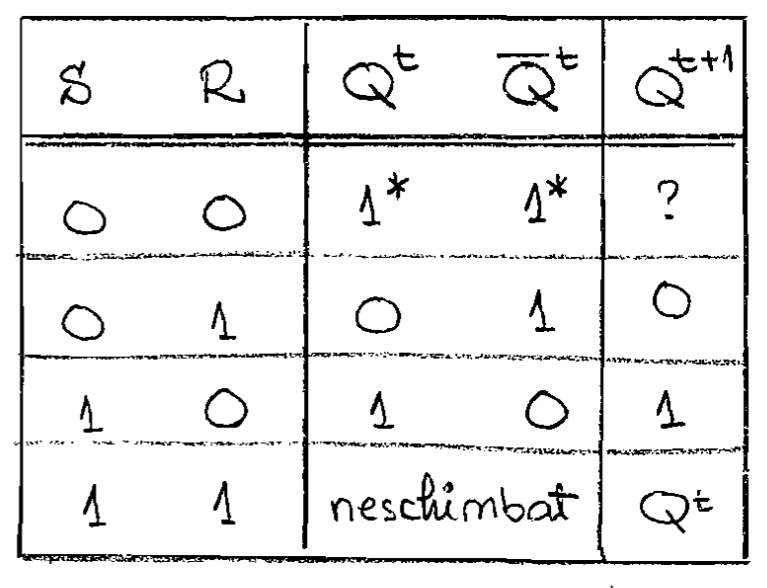 S R Qᵗ Q̅ᵗ Qᵗ⁺¹
0 0 1* 1* ?
0 1 0 1 0
1 0 1 0 1
1 1 neschimbat Qᵗ